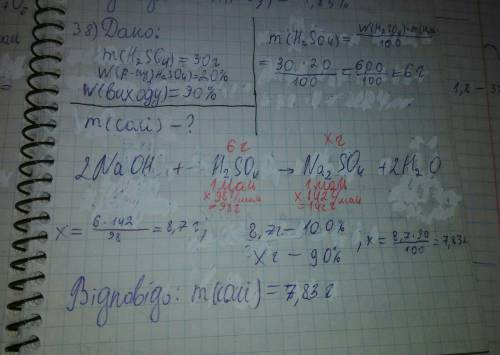 38) Дано:
m(H₂SO₄) = 30г
W(р-ну)(H₂SO₄) = 20%
W(виходу) = 90%
m(солі) - ?
m(H₂SO₄) = W(H₂SO₄)·m(
100
= 30·20/100 = 600/100 = 6г
1,8 -
6г xг
2NaOH + H₂SO₄ → Na₂SO₄ + 2H₂O
1моль 1моль
x 98г/моль x 142г/моль
= 98г = 142г
x = 6·142/98 = 8,7г; 8,7г - 100%
xг - 90% , x = 8,7·90/100 = 7,83г
Відповідь: m(солі) = 7,83г